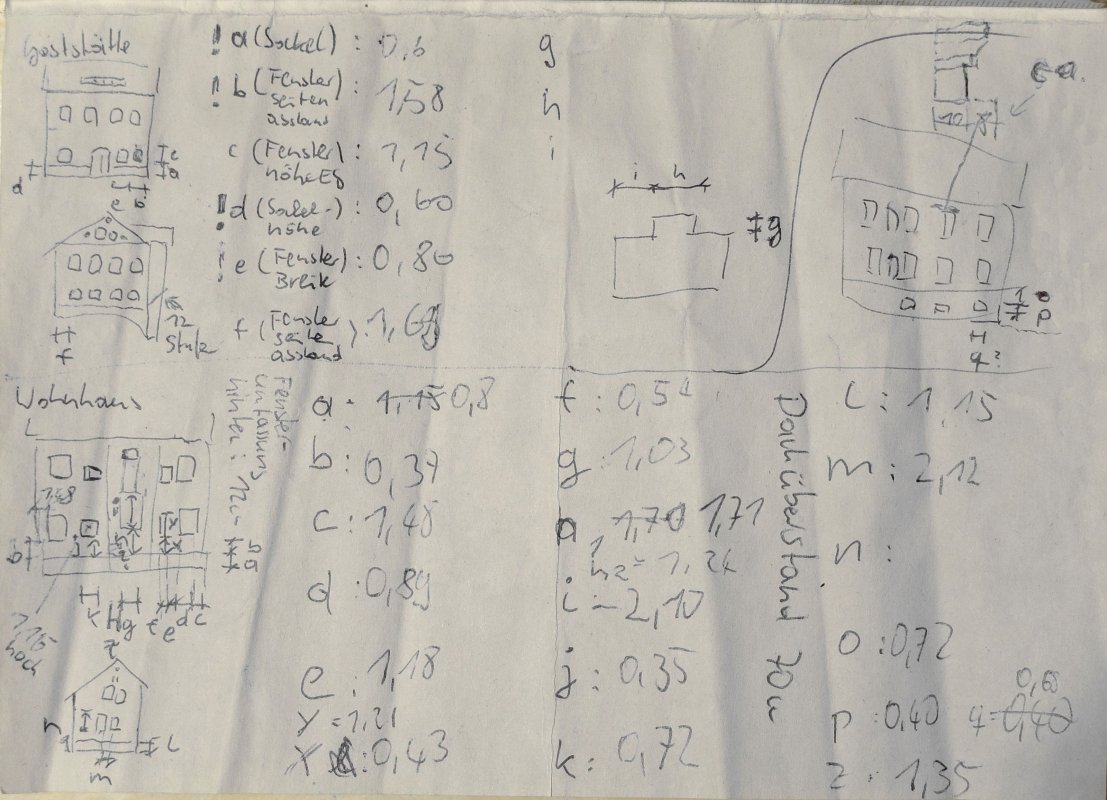 Gaststätte
! a (Sockel) : 0,6
! b (Fenster seiten abstand) : 1,58
c (Fenster) höhe EG : 1,15
! d (Sockel- höhe : 0,60
e (Fenster) Breite : 0,80
f (Fenster seiten abstand) : 1,69
g
h
i
i h
g
ca.
10 8
o
p
q?
e
a
d
b
e
12
f
Wohnhaus
Fenster-
umfassung
hinten: 12
a : 1,15 0,8
b : 0,34
c : 1,48
d : 0,89
e : 1,18
y = 1,21
x : 0,43
f : 0,54
g : 1,03
h 1,70 1,71
h2 = 1,24
i = 2,10
j : 0,35
k : 0,72
Dachüberstand 70cm
L : 1,15
m : 2,12
n :
o : 0,72
p : 0,40 q = 0,40 0,68
z : 1,35
1,48
b
j
k h g f e d c
1,15
hoch
z
n
L
m